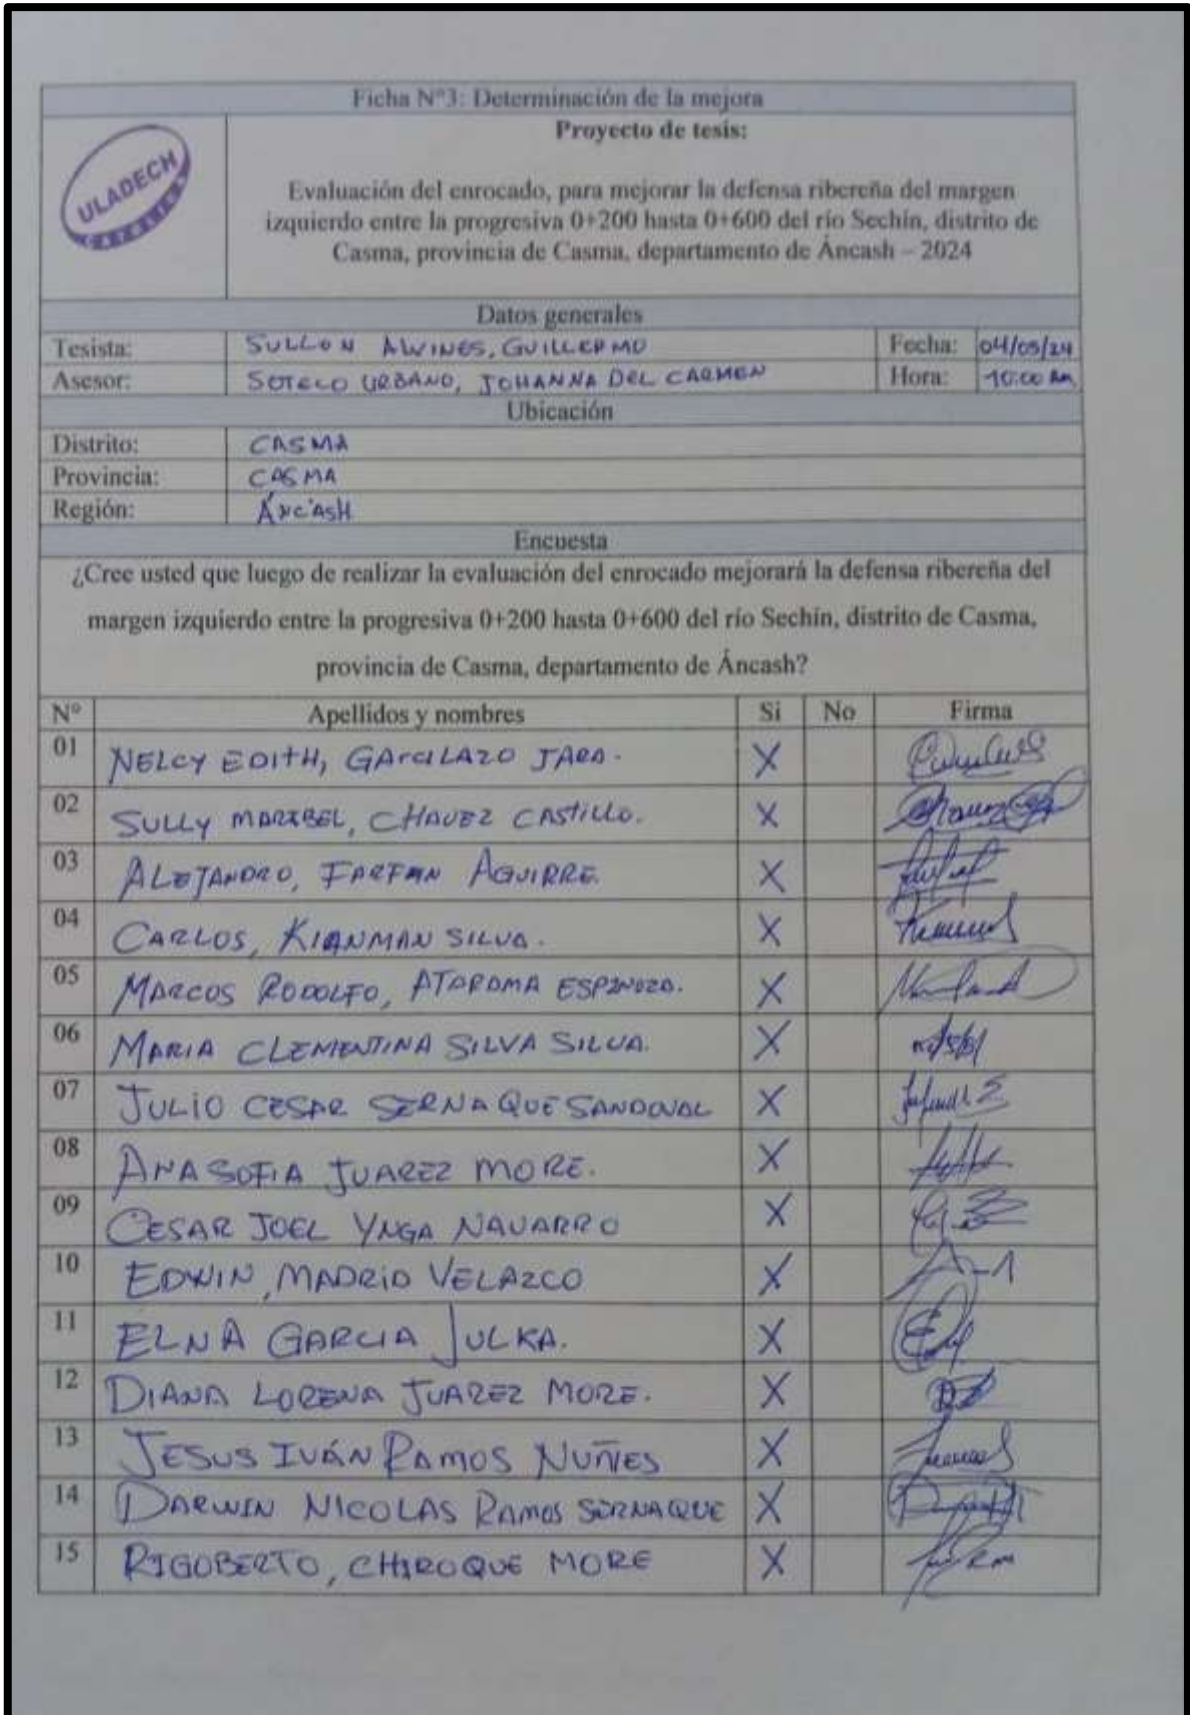 Ficha N°3: Determinación de la mejora
ULADECH
Proyecto de tesis:
Evaluación del enrocado, para mejorar la defensa ribereña del margen
izquierdo entre la progresiva 0+200 hasta 0+600 del río Sechín, distrito de
Casma, provincia de Casma, departamento de Áncash – 2024
Datos generales
Tesista: SULLON AWINES, GUILLERMO Fecha: 04/05/24
Asesor: SOTELO URBANO, JOHANNA DEL CARMEN Hora: 10:00 Am
Ubicación
Distrito: CASMA
Provincia: CASMA
Región: ÁNCASH
Encuesta
¿Cree usted que luego de realizar la evaluación del enrocado mejorará la defensa ribereña del
margen izquierdo entre la progresiva 0+200 hasta 0+600 del río Sechín, distrito de Casma,
provincia de Casma, departamento de Áncash?
N° Apellidos y nombres Si No Firma
01 NELCY EDITH, GARCILAZO JARA. X
02 SULLY MARIBEL, CHAVEZ CASTILLO. X
03 ALEJANDRO, FARFAN AGUIRRE. X
04 CARLOS, KIANMAN SILVA. X
05 MARCOS RODOLFO, ATAROMA ESPINOZA. X
06 MARIA CLEMENTINA SILVA SILVA. X
07 JULIO CESAR SERNAQUE SANDOVAL X
08 ANA SOFIA JUAREZ MORE. X
09 CESAR JOEL YNGA NAVARRO X
10 EDWIN, MADRID VELAZCO X
11 ELNA GARCIA JULKA. X
12 DIANA LORENA JUAREZ MORE. X
13 JESUS IVÁN RAMOS NUÑES X
14 DARWIN NICOLAS RAMOS SERNAQUE X
15 RIGOBERTO, CHIROQUE MORE X